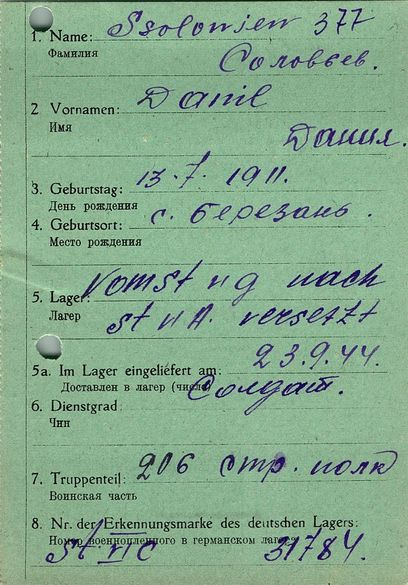 1. Name: Ssolowjew 377
Фамилия Соловьев.
2. Vornamen: Danil
Имя Данил.
3. Geburtstag: 13.7.1911.
День рождения
4. Geburtsort: с. Березань.
Место рождения
5. Lager: vom St II G nach
Лагер St II A. versetzt
5a. Im Lager eingeliefert am: 23.9.44.
Доставлен в лагер (число)
6. Dienstgrad: Солдат.
Чин
7. Truppenteil: 206 стр. полк
Воинская часть
8. Nr. der Erkennungsmarke des deutschen Lagers:
Номер военнопленного в германском лагере
St VI C 31784.